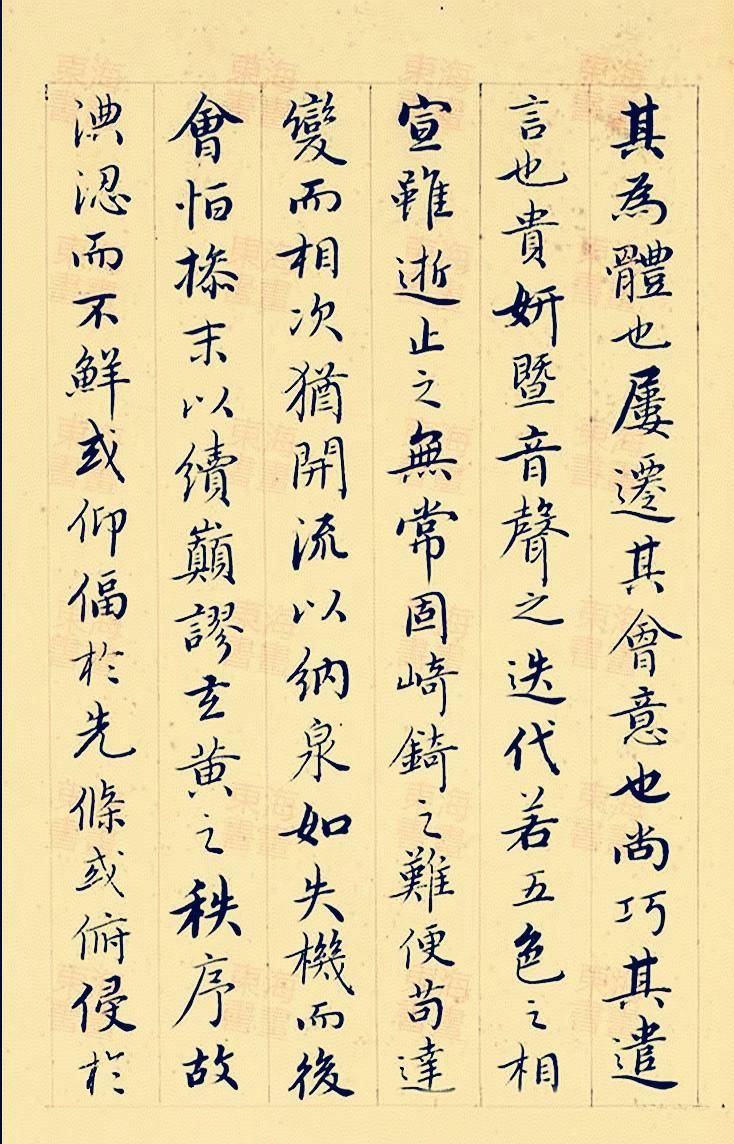 其為體也屢遷其會意也尚巧其遣
言也貴妍暨音聲之迭代若五色之相
宣雖逝止之無常固崎錡之難便苟達
變而相次猶開流以納泉如失機而後
會恒操末以續巔謬玄黃之秩序故
淟涊而不鮮或仰偪於先條或俯侵於